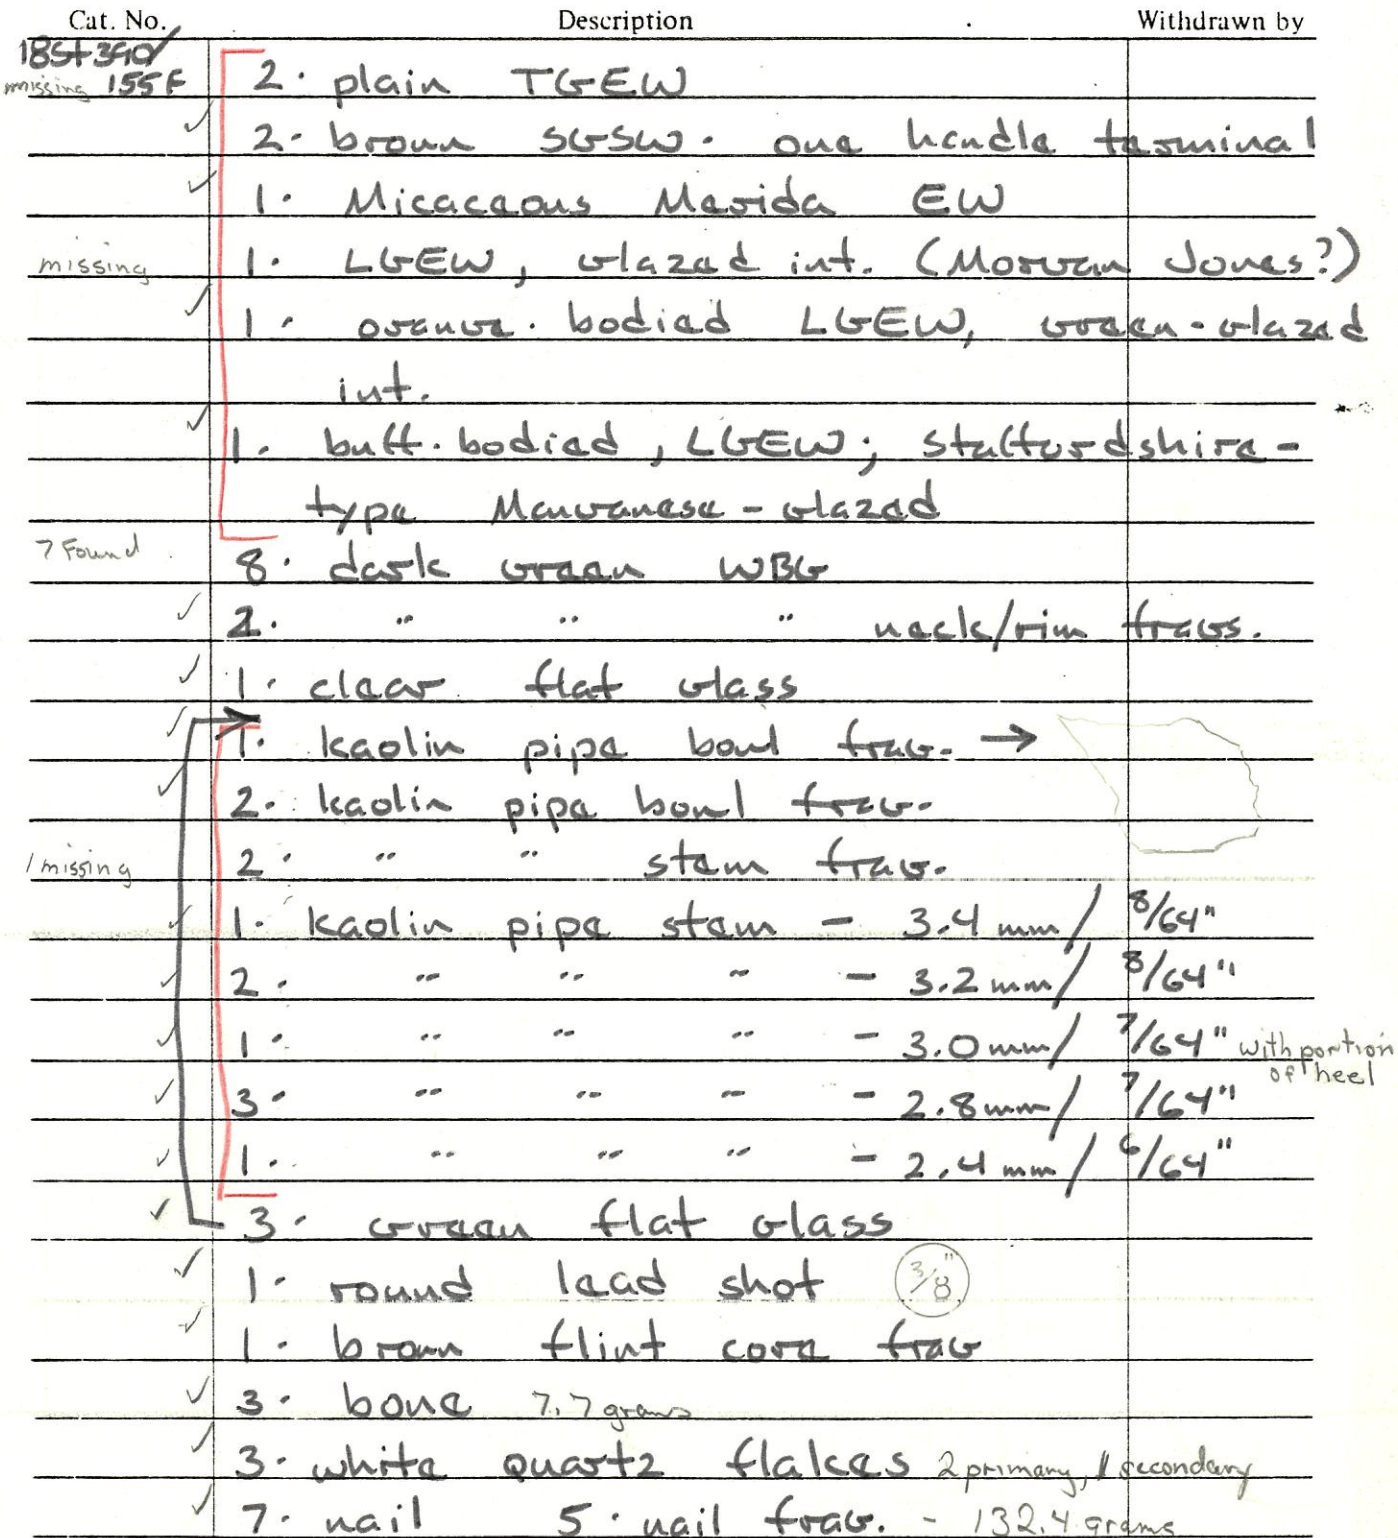 Cat. No. Description Withdrawn by
18St390/
missing 155F 2· plain TGEW
✓ 2· brown SGSW· one handle terminal
✓ 1· Micaceous Merida EW
missing 1· LGEW, glazed int. (Morgan Jones?)
✓ 1· orange·bodied LGEW, green-glazed
int.
✓ 1· buff·bodied, LGEW; Staffordshire-
type Manganese-glazed
7 Found 8· dark green WBG
✓ 2· " " " neck/rim frags.
✓ 1· clear flat glass
✓ 1· kaolin pipe bowl frag. →
✓ 2· kaolin pipe bowl frag.
1 missing 2· " " stem frag.
✓ 1· kaolin pipe stem - 3.4mm/ 8/64"
✓ 2· " " " - 3.2mm/ 8/64"
✓ 1· " " " - 3.0mm/ 7/64" with portion
of heel
✓ 3· " " " - 2.8mm/ 7/64"
✓ 1· " " " - 2.4mm/ 6/64"
✓ 3· green flat glass
✓ 1· round lead shot 3/8"
✓ 1· brown flint core frag
✓ 3· bone 7.7 grams
✓ 3· white quartz flakes 2 primary, 1 secondary
✓ 7· nail 5· nail frag. - 132.4 grams